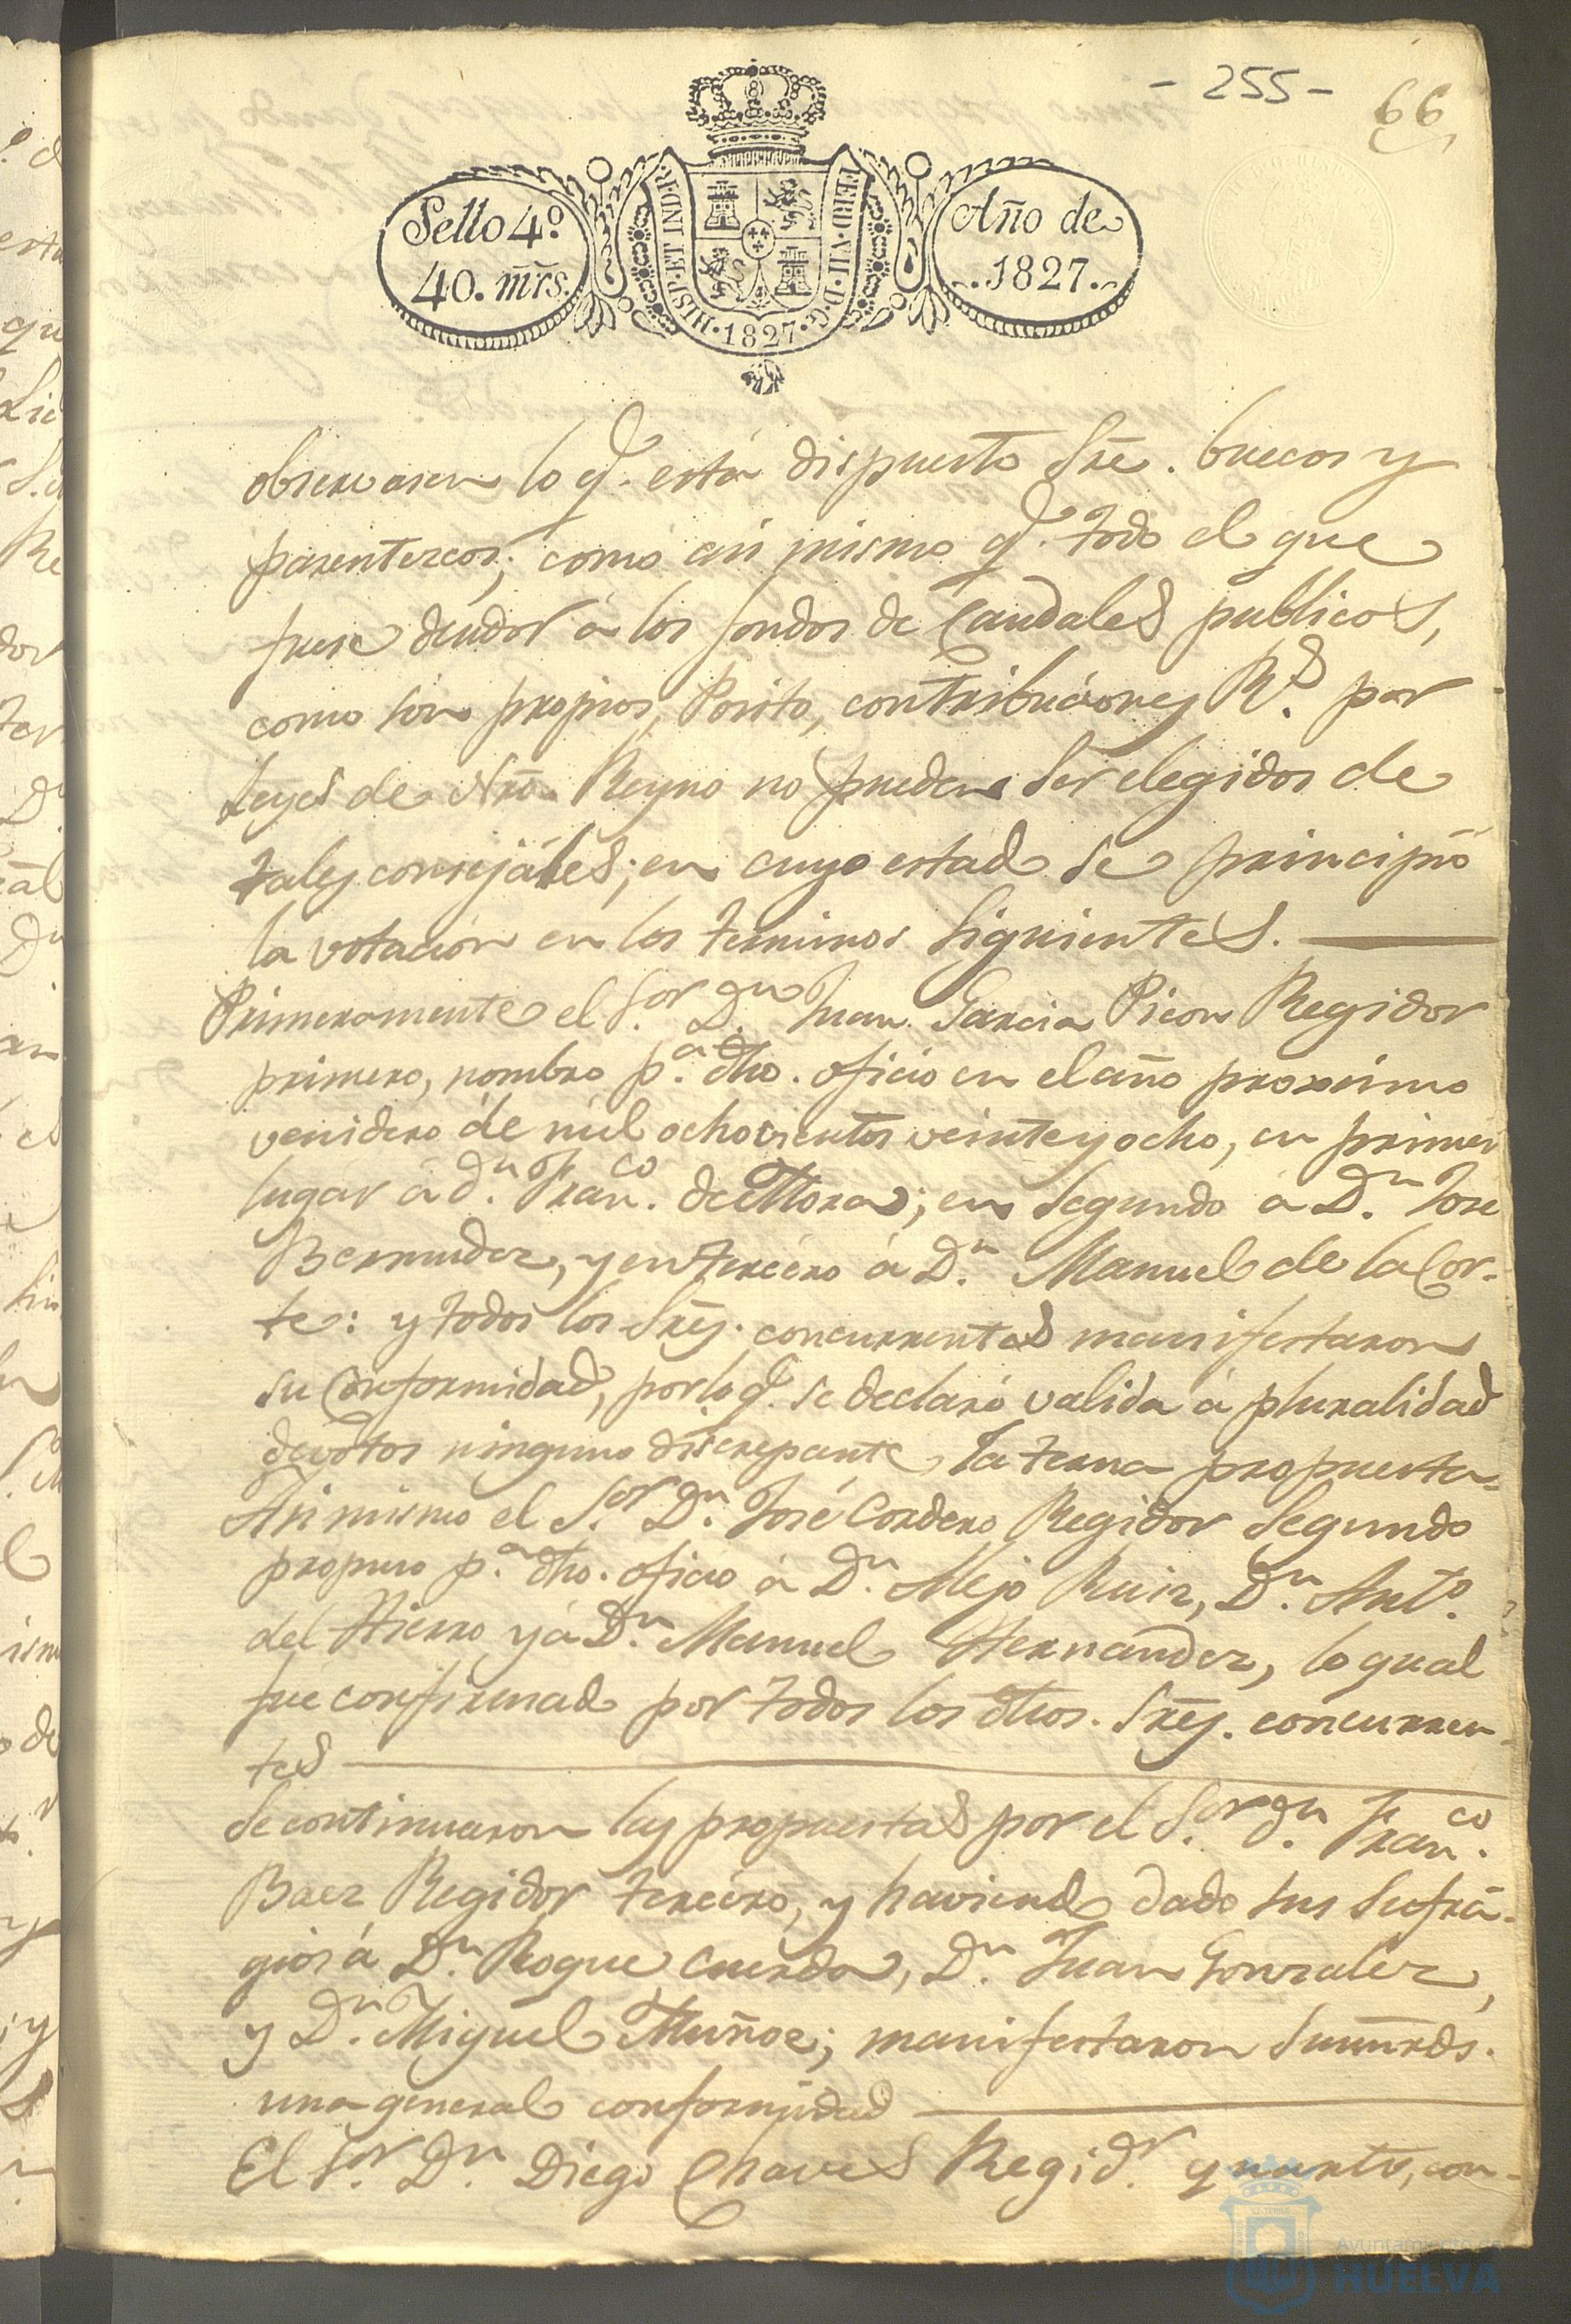 - 255 -
66
Sello 4º
40. mrs.
HISP. ET IND. R.
FERD. VII. D. G.
1827
Año de
1827.
observasen lo q.e está dispuesto Sre. huecos y
parentezcos; como asi mismo q.e todo el que
fuese deudor á los fondos de Caudales publicos,
como son propios, Posito, contribuciones R.s por
Leyes de Nro. Reyno no pueden ser elegidos de
tales consejales; en cuyo estado se principió
la votacion en los terminos siguientes.
Primeramente el S.or D.n Juan Garcia Picon Regidor
primero, nombro p.a dho. oficio en el año proximo
venidero de mil ochocientos veinte y ocho, en primer
lugar á d.n Fran.co de Mora; en segundo á D.n Jose
Bermudez, y en tercero á D.n Manuel de la Cor-
te: y todos los Sres. concurrentes manifestaron
su Conformidad, por lo q.e se declaró valida á pluralidad
de votos ninguno discrepante, la terna propuesta.
Asi mismo el S.or D.n José Cordero Regidor Segundo
propuso p.a dho. oficio á D.n Alejo Ruiz, D.n Ant.o
del Hierro y á D.n Manuel Hernandez, lo qual
fue confirmado por todos los dhos. Sres. concurren-
tes
Se continuaron las propuestas por el S.or d.n Fran.co
Baez Regidor tercero, y haviendo dado sus sufra-
gios á D.n Roque Cuerda, D.n Juan Gonzalez,
y D.n Miguel Muñoz; manifestaron sumrds.
una general conformidad
El S.or D.n Diego Chaves Regid.r quarto, con-
Ayuntamiento de
HUELVA